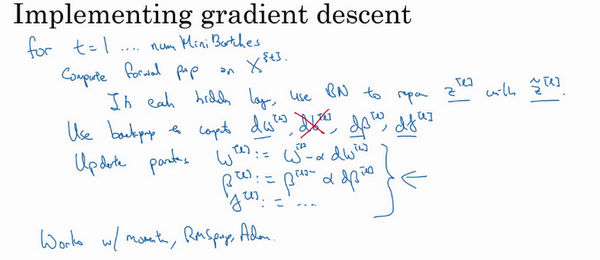 Implementing gradient descent
for t=1 .... numMiniBatches
Compute forward prop on X^{t}.
In each hidden lay, use BN to repan z^[l] with z̃^[l].
Use backprop to compt dw^[l], db^[l], dβ^[l], dγ^[l]
Update parates w^[l] := w^[l] - α dw^[l]
β^[l] := β^[l] - α dβ^[l]
γ^[l] := ... ←
Works w/ momentm, RMSprop, Adam.